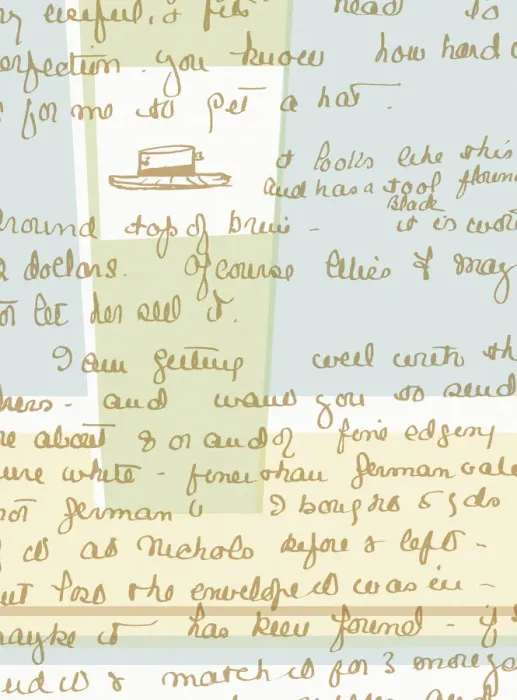 useful, & fits head is
perfection. you know how hard
for me to get a hat.
it looks like this
and has a
Black
around top of brim - it is
2 dollars. Of course Ellie & may
not let her see it.
I am getting well with
hers - and want you to send
me about 8 or and of fine edgeing
white - finer than German
not German I bought 5 yds
it at Nichols before I left -
but lost the envelope it was in -
maybe it has been found - if
& match it for 3 more